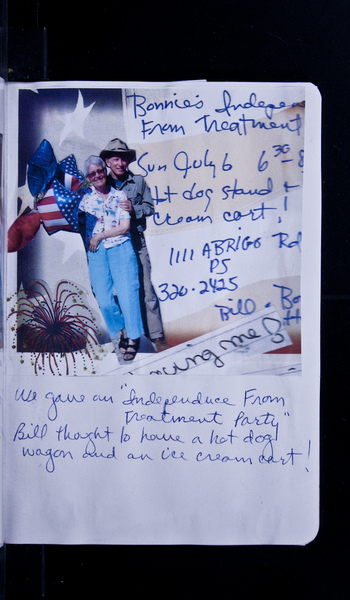 Bonnie's Indepen
From Treatment
Sun July 6 6³⁰-8
Hot dog stand +
cream cart!
1111 ABRIGO Rd
PS
320-2425
Bill + Bo
me
We gave an "Independuce From
Treatment Party"
Bill thought to have a hot dog
wagon and an ice cream cart!